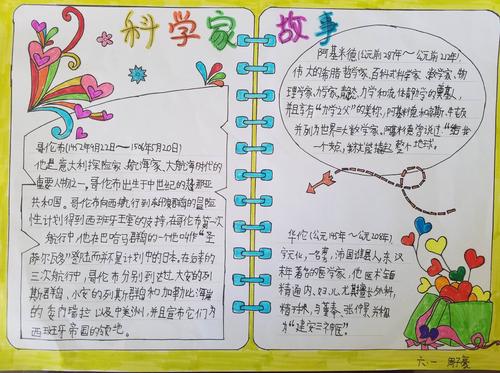 科学家故事
哥伦布(1452年9月22日～1506年5月20日)
他是意大利探险家、航海家、大航海时代的
重要人物之一。哥伦布出生于中世纪的热那亚
共和国。哥伦布向西航行到
性计划得到西班牙王室的支持,在哥伦布第一次
航行中,他在巴哈马群岛的一个地叫作“圣
萨尔瓦多”登陆而并不是计划中的日本,在后来的
三次航行中,哥伦布分别到达过大安的列
斯群岛、小安的列斯群岛和加勒比海岸
的委内瑞拉以及中美洲,并且宣布它们为
西班牙帝国的领地。
阿基米德(公元前287年～公元前212年),
伟大的希腊哲学家、百科式科学家、数学家、物
理学家、力学家,静态力学和流体静力学的奠基人,
并且享有“力学之父”的美称,阿基米德和高斯、牛顿
并列为世界三大数学家。阿基米德曾说过:“给我
一个支点,我就能撬起整个地球。
华佗(公元145年～公元208年),
字元化,一名旉,沛国谯县人,东汉
末年著名的医学家,他医术全面
精通内、妇、儿尤其擅长外科,
精于手术,与董奉、张仲景并称
为“建安三神医”。
六、一